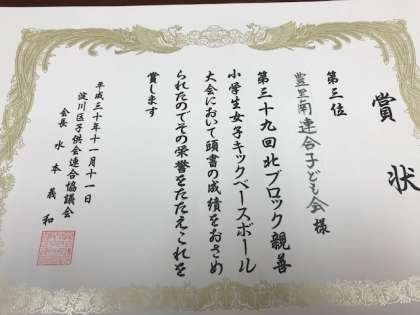 賞状
第三位
豊里南連合子ども会様
第三十九回北ブロック親善
小学生女子キックベースボール
大会において頭書の成績をおさめ
られたのでその栄誉をたたえこれを
賞します
平成三十年十一月十一日
淀川区子供会連合協議会
会長 水本義和